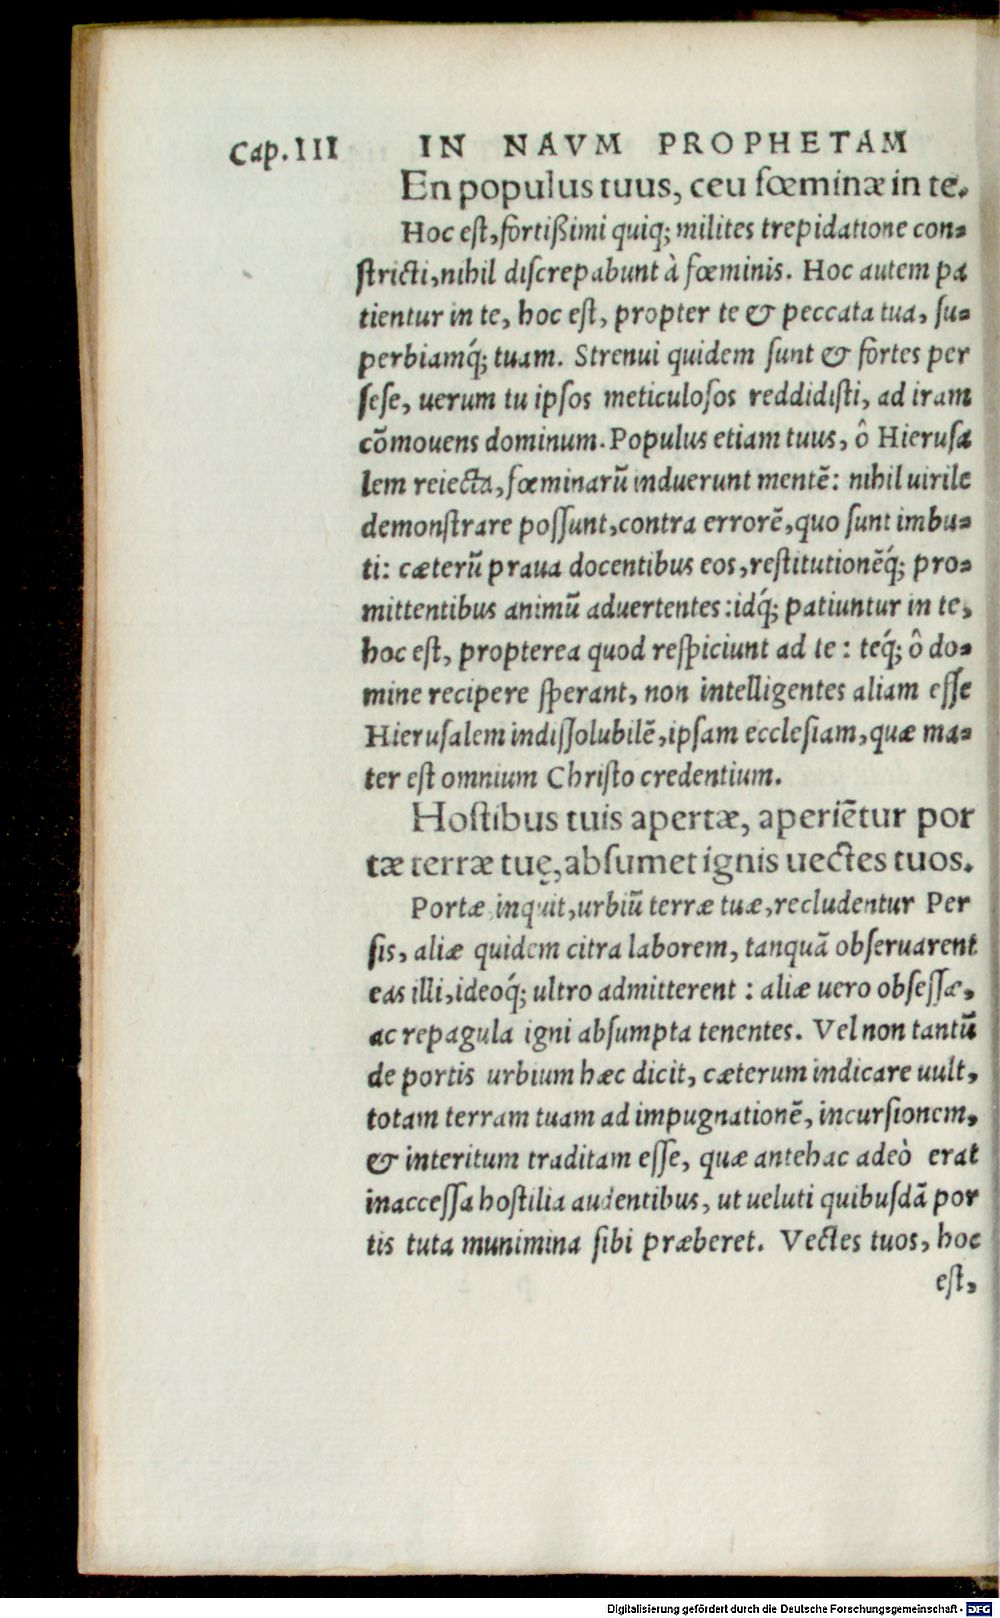 Cap. III IN NAVM PROPHETAM
En populus tuus, ceu fœminæ in te.
Hoc est, fortißimi quiq; milites trepidatione con-
stricti, nihil discrepabunt à fœminis. Hoc autem pa
tientur in te, hoc est, propter te & peccata tua, su-
perbiamq́; tuam. Strenui quidem sunt & fortes per
sese, uerum tu ipsos meticulosos reddidisti, ad iram
cõmouens dominum. Populus etiam tuus, ô Hierusa
lem reiecta, fœminarũ induerunt mentẽ: nihil uirile
demonstrare possunt, contra errorẽ, quo sunt imbu-
ti: cæterũ praua docentibus eos, restitutionẽq́; pro-
mittentibus animũ aduertentes: idq́; patiuntur in te,
hoc est, propterea quod respiciunt ad te: teq́; ô do-
mine recipere sperant, non intelligentes aliam esse
Hierusalem indissolubilẽ, ipsam ecclesiam, quæ ma-
ter est omnium Christo credentium.
Hostibus tuis apertæ, aperiẽtur por
tæ terræ tuę, absumet ignis uectes tuos.
Portæ, inquit, urbiũ terræ tuæ, recludentur Per
sis, aliæ quidem citra laborem, tanquã obseruarent
eas illi, ideoq́; ultro admitterent: aliæ uero obsessæ,
ac repagula igni absumpta tenentes. Vel non tantũ
de portis urbium hæc dicit, cæterum indicare uult,
totam terram tuam ad impugnationẽ, incursionem,
& interitum traditam esse, quæ antehac adeò erat
inaccessa hostilia audentibus, ut ueluti quibusdã por
tis tuta munimina sibi præberet. Vectes tuos, hoc
est,
Digitalisierung gefördert durch die Deutsche Forschungsgemeinschaft - DFG